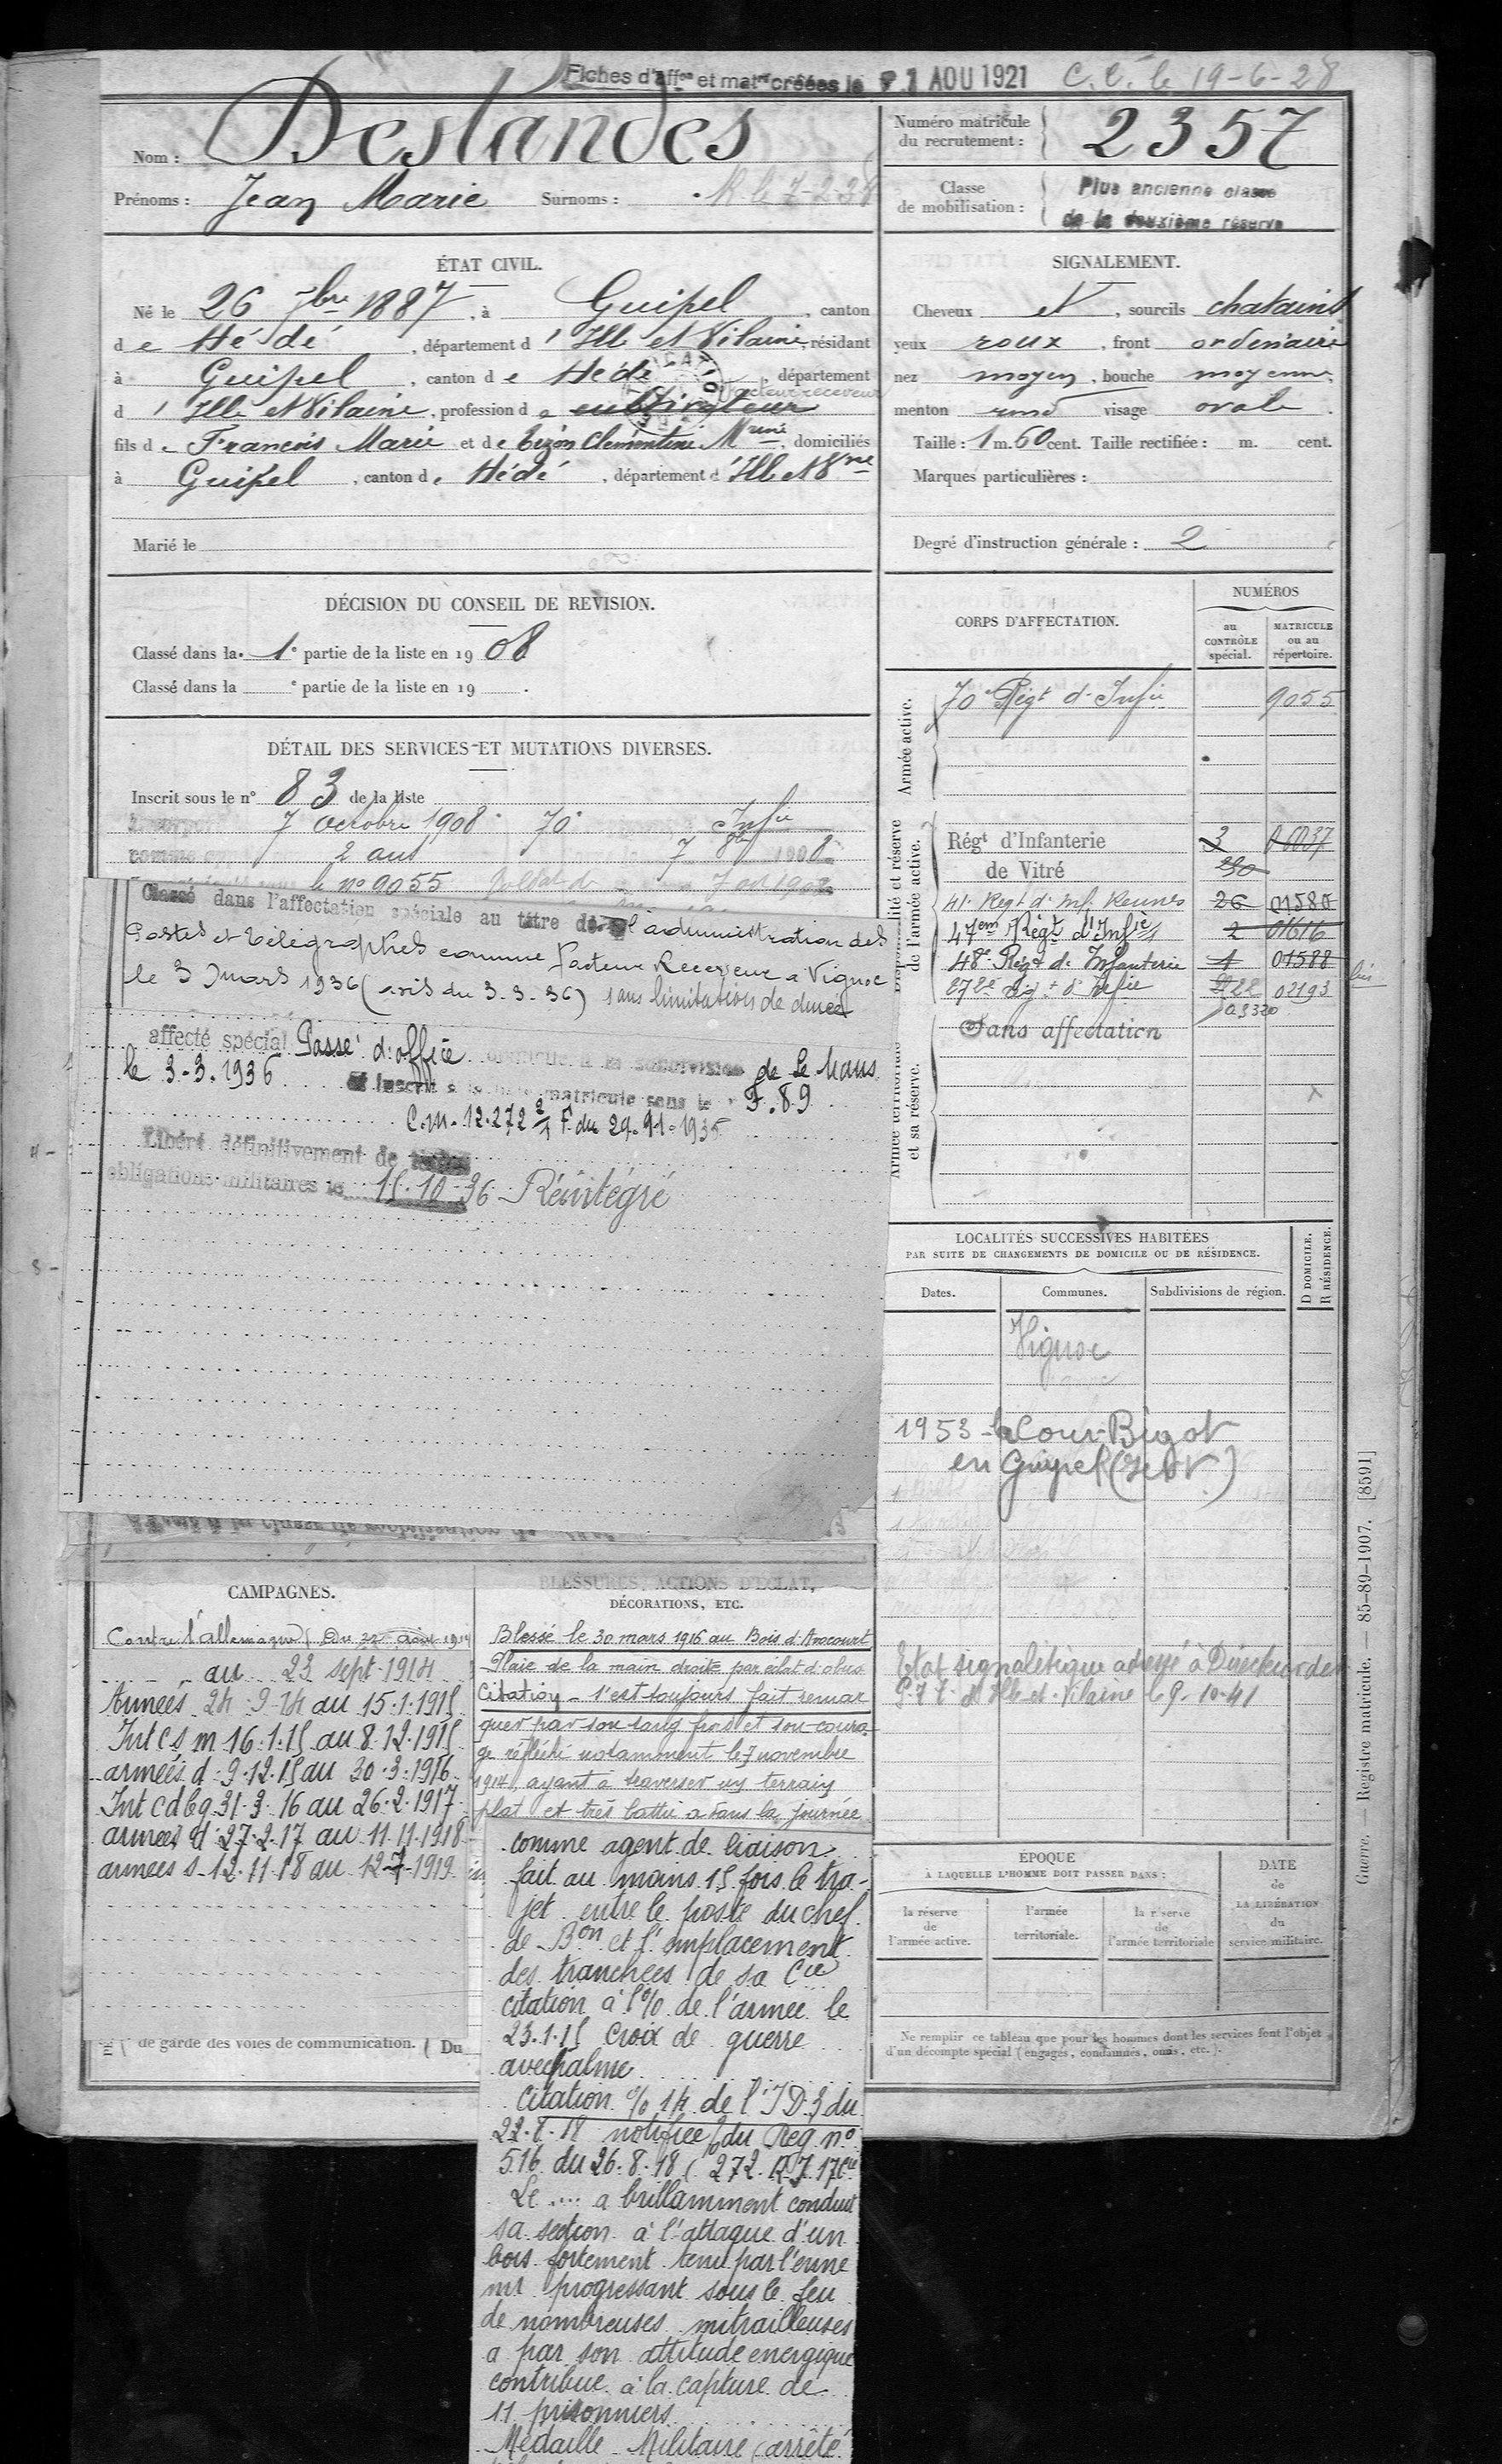 Fiches d'aff^on et mat^re créées le 21 AOU 1921 C.C. le 19-6-28
Nom : Deslandes
Prénoms : Jean Marie Surnoms : R. le 7-2-38
Numéro matricule du recrutement : 2357
Classe de mobilisation : Plus ancienne classe
de la deuxième réserve
ÉTAT CIVIL.
Né le 26 7bre 1887, à Guipel, canton
de Hédé, département d'Ille et Vilaine, résidant
à Guipel, canton de Hédé, département
facteur receveur
d'Ille et Vilaine, profession de cultivateur
fils de François Marie et de Tizon Clémentine Mrine, domiciliés
à Guipel, canton de Hédé, département d'Ille et Vne
Marié le
SIGNALEMENT.
Cheveux et, sourcils chatains
yeux roux, front ordinaire
nez moyen, bouche moyenne,
menton rond visage ovale.
Taille : 1 m. 60 cent. Taille rectifiée : m. cent.
Marques particulières :
Degré d'instruction générale : 2
DÉCISION DU CONSEIL DE REVISION.
Classé dans la 1e partie de la liste en 1908
Classé dans la e partie de la liste en 19 .
DÉTAIL DES SERVICES ET MUTATIONS DIVERSES.
Inscrit sous le n° 83 de la liste
7 octobre 1908 70e Infie
2 ans 7 8bre 1908
le no 9055 Soldat de
Classé dans l'affectation spéciale au titre de l'administration des
Postes et Télégraphes comme facteur Receveur à Vignoc
le 3 mars 1936 (avis du 3.3.36) sans limitation de durée
affecté spécial Passé d'office à la subdivision de Le Mans
le 3-3.1936 et inscrit matricule sous le F.89
C.m. 12.272 2/1 F. du 29.11.1935
Libéré définitivement de
obligations militaires le 15.10.36 Réintégré
CORPS D'AFFECTATION.
NUMÉROS
au CONTRÔLE spécial.
MATRICULE ou au répertoire.
Armée active.
70e Régt d'Infie 9055
et réserve de l'armée active.
Régt d'Infanterie 3 06037
de Vitré
41e Régt d'Inf. Rennes 26 01580
47em Régt d'Infie 2 01616
48e Régt d'Infanterie 1 01588 bis
272e Rgt d'Infie 02193
Armée territoriale et sa réserve.
Sans affectation
LOCALITÉS SUCCESSIVES HABITÉES
PAR SUITE DE CHANGEMENTS DE DOMICILE OU DE RÉSIDENCE.
Dates. Communes. Subdivisions de région. D DOMICILE. R RÉSIDENCE.
Vignoc
1953 la Cour Bigot
en Guipel (I et V)
Etat signalétique adressé à Directeur des
P.T.T. d'Ille-et-Vilaine le 9-10-41
CAMPAGNES.
Contre l'allemagne Du 22 Août 1914
au 23 sept-1914
Armées 24.9.14 au 15.1.1915
Int C s m 16.1.15 au 8.12.1915
armées d. 9.12.15 au 30.3.1916
Int c d bg 31.3.16 au 26.2.1917
armées d 27.2.17 au 11.11.1918
armées s. 12.11.18 au 12.7.1919
de garde des voies de communication. ( Du
BLESSURES, ACTIONS D'ÉCLAT,
DÉCORATIONS, ETC.
Blessé le 30 mars 1916 au Bois d'Avocourt
Plaie de la main droite par éclat d'obus
Citation - s'est toujours fait remar
quer par son sang froid et son coura-
ge réfléchi notamment le 7 novembre
1914, ayant à traverser un terrain
plat et très battu a dans la journée
comme agent de liaison
fait au moins 15 fois le tra-
jet entre le poste du chef
de Bon et l'emplacement
des tranchées de sa Cie
citation à l'% de l'armée le
23.1.15 Croix de guerre
avec palme
Citation % 14 de l'ID.3 du
22.8.18 notifiée % du Reg no
516 du 26.8.18 (272 R.I. 17Cie
Le .... a brillamment conduit
sa section à l'attaque d'un
bois fortement tenu par l'enne
mi progressant sous le feu
de nombreuses mitrailleuses
a par son attitude énergique
contribué à la capture de
11 prisonniers
Médaille Militaire (arrêté
ÉPOQUE
À LAQUELLE L'HOMME DOIT PASSER DANS :
la réserve de l'armée active.
l'armée territoriale.
la réserve de l'armée territoriale
DATE de LA LIBÉRATION du service militaire.
Ne remplir ce tableau que pour les hommes dont les services font l'objet
d'un décompte spécial (engagés, condamnés, omis, etc.).
Guerre. — Registre matricule. — 85-89-1907. [8591]